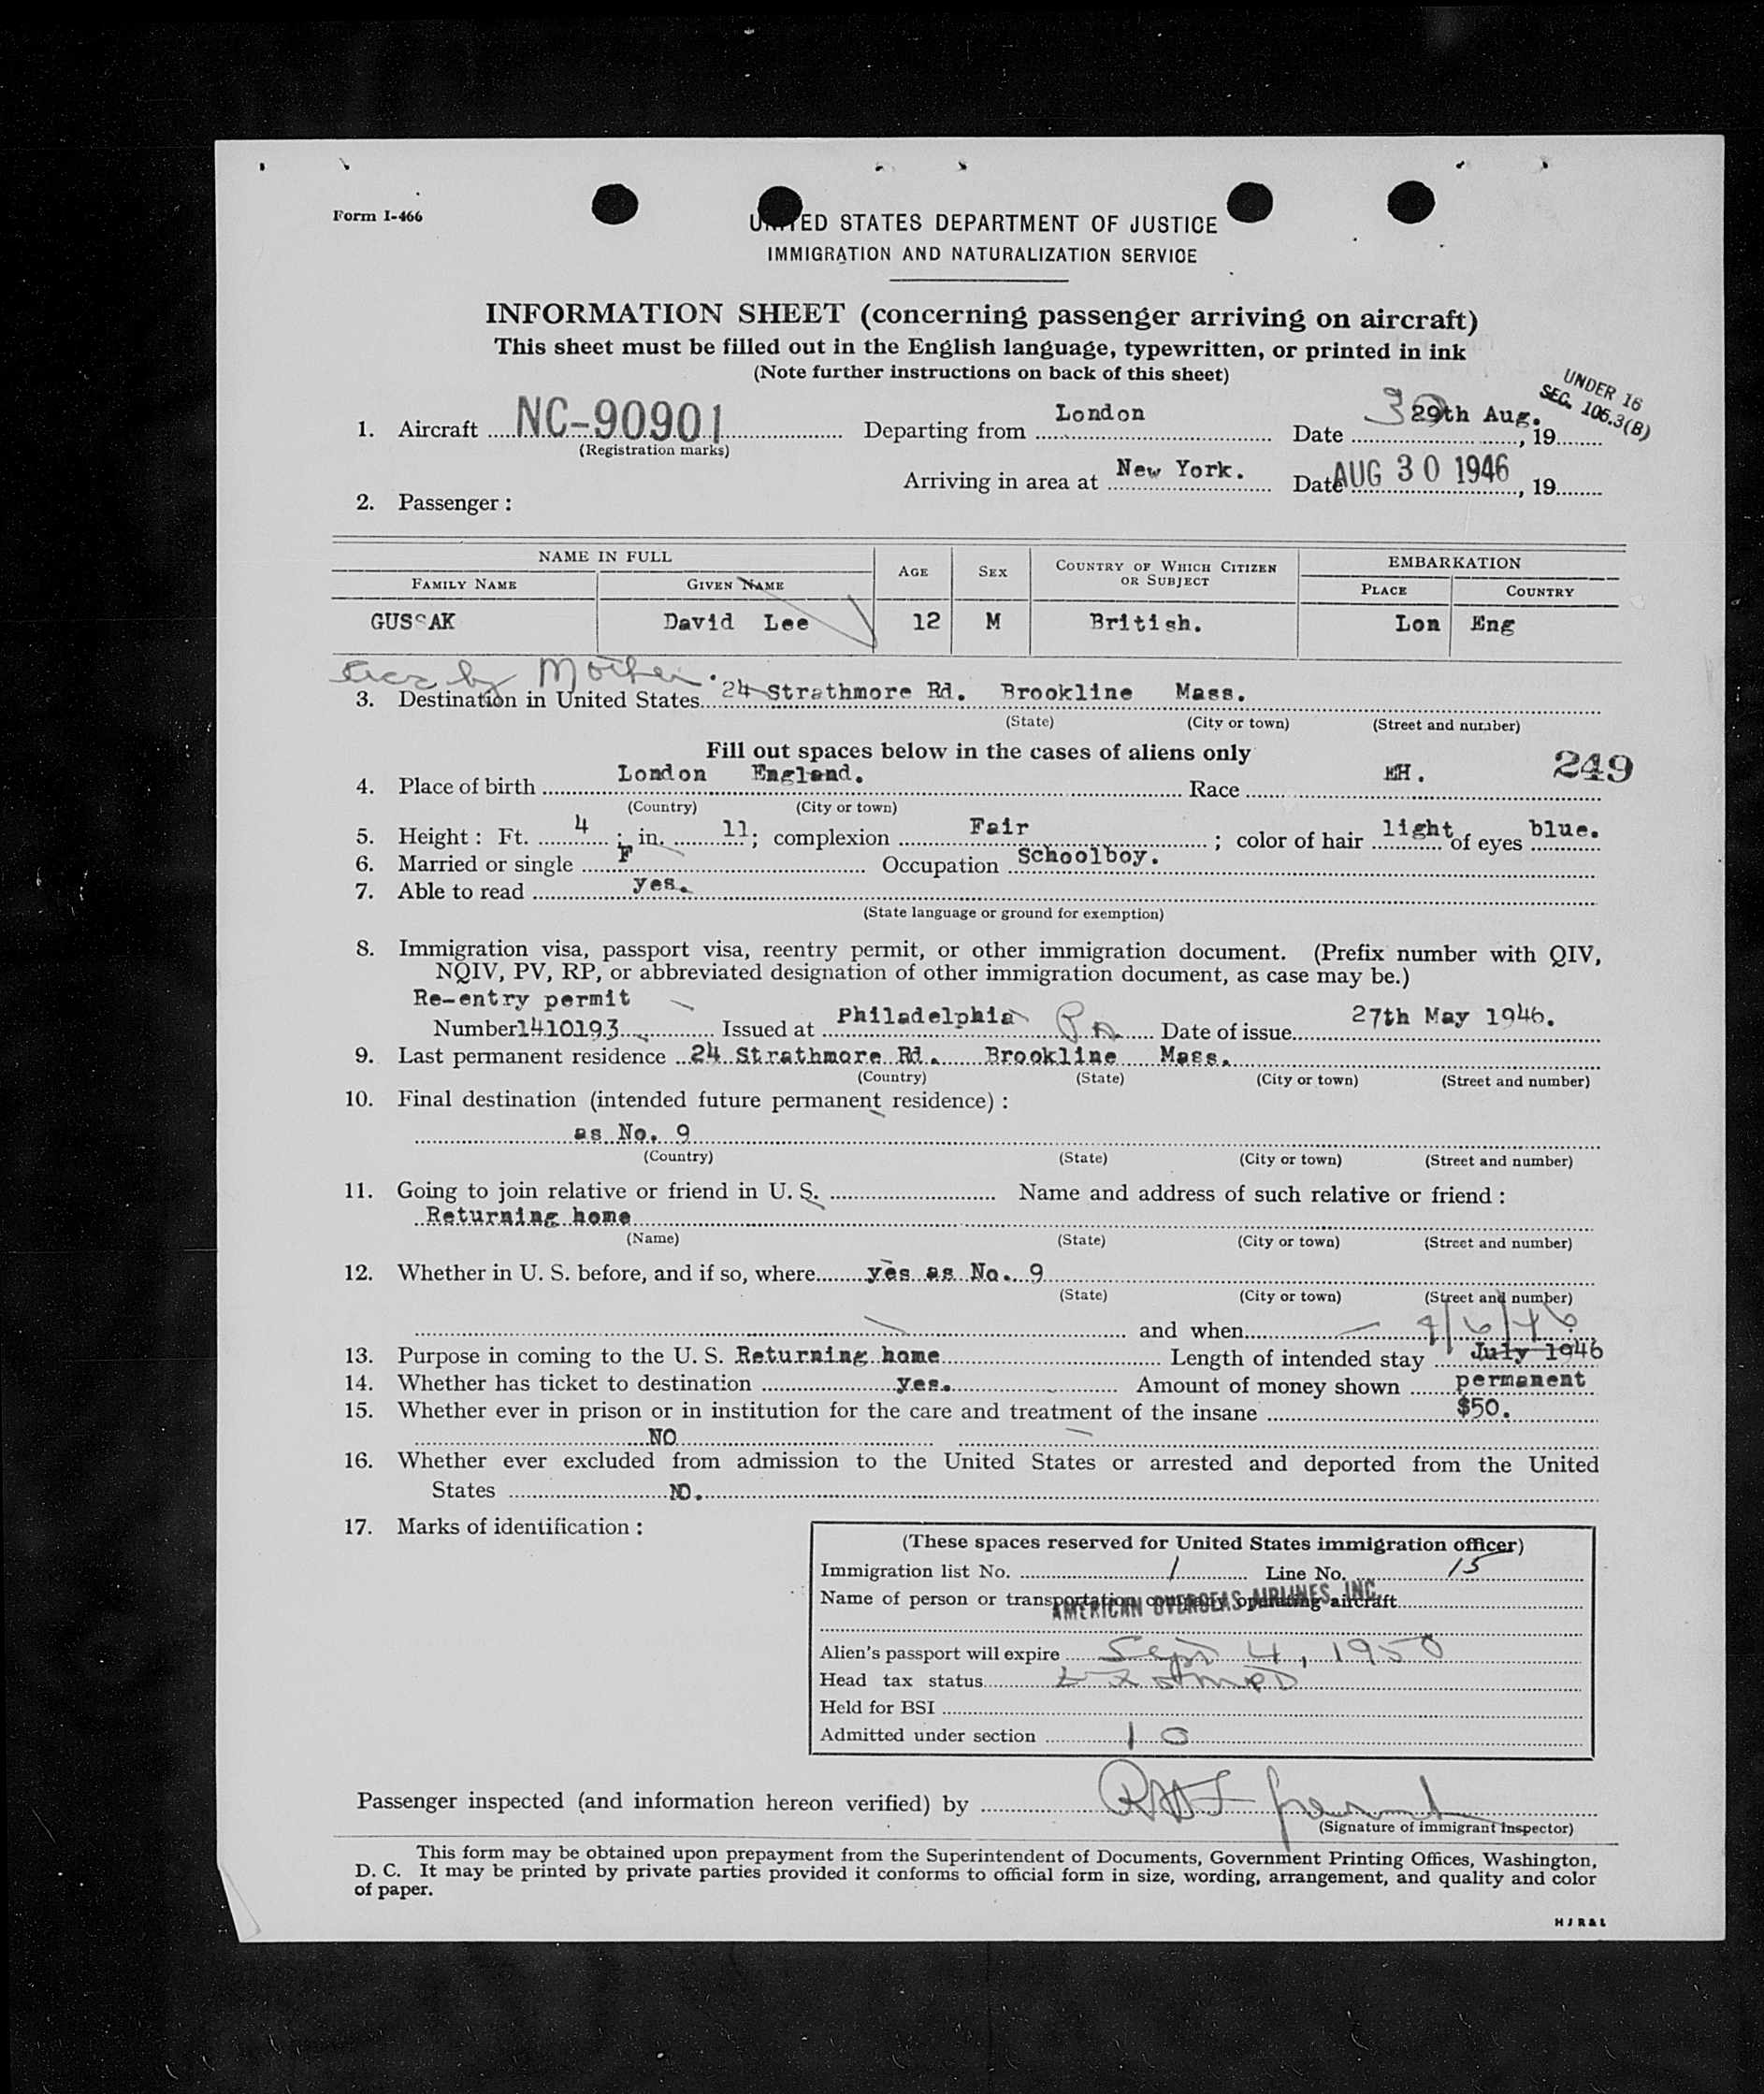 Form I-466
UNITED STATES DEPARTMENT OF JUSTICE
IMMIGRATION AND NATURALIZATION SERVICE
INFORMATION SHEET (concerning passenger arriving on aircraft)
This sheet must be filled out in the English language, typewritten, or printed in ink
(Note further instructions on back of this sheet)
UNDER 16
SEC. 106.3(B)
1. Aircraft NC-90901 Departing from London Date 30 29th Aug. , 19
(Registration marks)
Arriving in area at New York. Date AUG 30 1946 , 19
2. Passenger :
NAME IN FULL AGE SEX COUNTRY OF WHICH CITIZEN OR SUBJECT EMBARKATION
FAMILY NAME GIVEN NAME PLACE COUNTRY
GUSSAK David Lee 12 M British. Lon Eng
by Mother
3. Destination in United States 24 Strathmore Rd. Brookline Mass.
(State) (City or town) (Street and number)
Fill out spaces below in the cases of aliens only
249
4. Place of birth London England. Race EH.
(Country) (City or town)
5. Height : Ft. 4 ; in. 11; complexion Fair ; color of hair light of eyes blue.
6. Married or single F Occupation Schoolboy.
7. Able to read yes.
(State language or ground for exemption)
8. Immigration visa, passport visa, reentry permit, or other immigration document. (Prefix number with QIV,
NQIV, PV, RP, or abbreviated designation of other immigration document, as case may be.)
Re-entry permit
Number 1410193 Issued at Philadelphia Pa Date of issue 27th May 1946.
9. Last permanent residence 24 Strathmore Rd. Brookline Mass.
(Country) (State) (City or town) (Street and number)
10. Final destination (intended future permanent residence) :
as No. 9
(Country) (State) (City or town) (Street and number)
11. Going to join relative or friend in U. S. Name and address of such relative or friend :
Returning home
(Name) (State) (City or town) (Street and number)
12. Whether in U. S. before, and if so, where yes as No. 9
(State) (City or town) (Street and number)
and when /6/46
13. Purpose in coming to the U. S. Returning home Length of intended stay July 1946
14. Whether has ticket to destination yes. Amount of money shown permanent
15. Whether ever in prison or in institution for the care and treatment of the insane $50.
NO
16. Whether ever excluded from admission to the United States or arrested and deported from the United
States NO.
17. Marks of identification :
(These spaces reserved for United States immigration officer)
Immigration list No. 1 Line No. 15
Name of person or transportation company operating aircraft
AMERICAN OVERSEAS AIRLINES, INC.
Alien's passport will expire Sept 4, 1950
Head tax status Exempt
Held for BSI
Admitted under section 10
Passenger inspected (and information hereon verified) by
(Signature of immigrant inspector)
This form may be obtained upon prepayment from the Superintendent of Documents, Government Printing Offices, Washington,
D. C. It may be printed by private parties provided it conforms to official form in size, wording, arrangement, and quality and color
of paper.
HJR&L